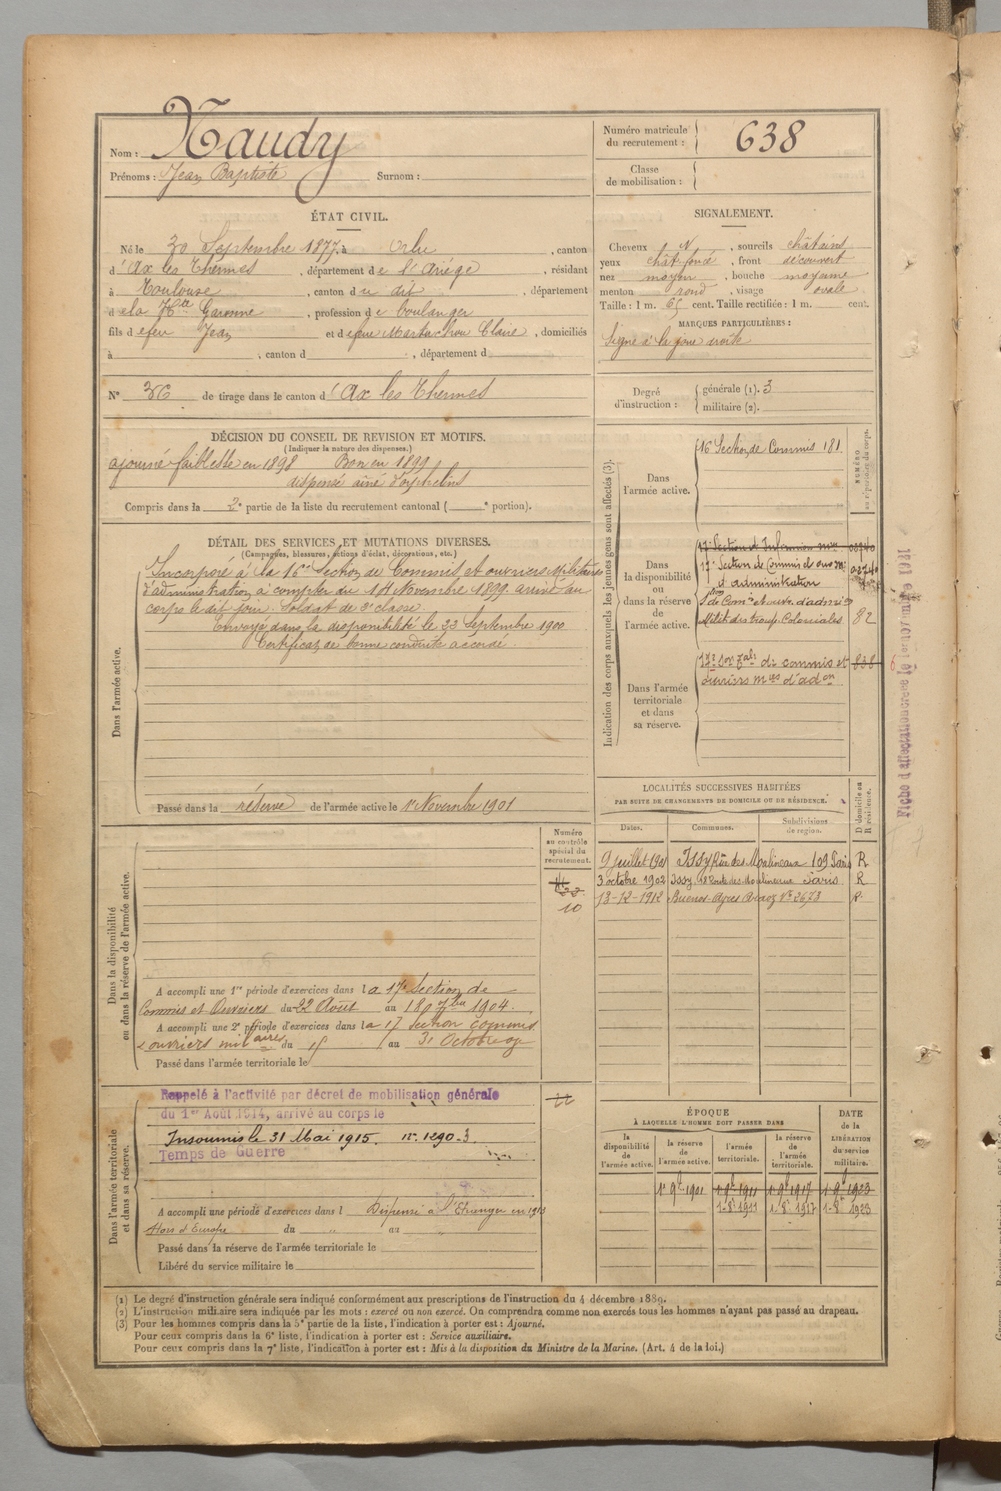 Nom : Naudy
Prénoms : Jean Baptiste Surnom :
Numéro matricule du recrutement : 638
Classe de mobilisation :
ÉTAT CIVIL.
Né le 30 Septembre 1877, à Orlu, canton
d'Ax les Thermes, département de l'Ariège, résidant
à Toulouse, canton du dit, département
de la Hte Garonne, profession de boulanger
fils de feu Jean et de feue Marfachou Claire, domiciliés
à , canton d , département d
N° 36 de tirage dans le canton d'Ax les Thermes
SIGNALEMENT.
Cheveux N , sourcils châtains
yeux chât. foncé , front découvert
nez moyen , bouche moyenne
menton rond , visage ovale
Taille : 1 m. 65 cent. Taille rectifiée : 1 m. cent.
MARQUES PARTICULIÈRES :
Signe à la joue droite
Degré d'instruction : générale (1). 3
militaire (2).
DÉCISION DU CONSEIL DE REVISION ET MOTIFS.
(Indiquer la nature des dispenses.)
ajourné faiblesse en 1898 Bon en 1899
dispensé aîné d'orphelins
Compris dans la 2e partie de la liste du recrutement cantonal ( e portion).
DÉTAIL DES SERVICES ET MUTATIONS DIVERSES.
(Campagnes, blessures, actions d'éclat, décorations, etc.)
Dans l'armée active.
Incorporé à la 16e Section de Commis et ouvriers Militaires
d'administration à compter du 14 Novembre 1899 arrivé au
corps le dit jour. Soldat de 2e classe.
Envoyé dans la disponibilité le 22 Septembre 1900
Certificat de bonne conduite accordé.
Passé dans la réserve de l'armée active le 1er Novembre 1901
Indication des corps auxquels les jeunes gens sont affectés (3).
NUMÉRO au répertoire du corps.
Dans l'armée active.
16 Section de Commis 181
Dans la disponibilité ou dans la réserve de l'armée active.
17e Section d'Infirmiers mres
17e Section de Commis et ouv. m.
d'administration
Son de Comis et ouvr. d'admion
Milit. des troup. Coloniales 82
Dans l'armée territoriale et dans sa réserve.
17e Son Tale de commis et 838
ouvriers mres d'adon
LOCALITÉS SUCCESSIVES HABITÉES
PAR SUITE DE CHANGEMENTS DE DOMICILE OU DE RÉSIDENCE.
Dates. Communes. Subdivisions de région. D domicile ou R résidence.
9 juillet 1901 Issy Rue des Moulineaux 109 Paris R
3 octobre 1902 Issy Route des Moulineaux Paris R
13-12-1912 Buenos-Ayres N° 2673 R.
Dans la disponibilité ou dans la réserve de l'armée active.
Numéro au contrôle spécial du recrutement.
10
A accompli une 1re période d'exercices dans la 17e Section de
Commis et Ouvriers du 22 Août au 18 7bre 1904.
A accompli une 2e période d'exercices dans la 17 section commis
et ouvriers militaires du 15 au 31 Octobre 07
Passé dans l'armée territoriale le
Dans l'armée territoriale et dans sa réserve.
Rappelé à l'activité par décret de mobilisation générale
du 1er Août 1914, arrivé au corps le
Insoumis le 31 Mai 1915. n° 1290-3
Temps de Guerre
A accompli une période d'exercices dans l Dispensé à l'Etranger en 1913
Hors d'Europe du „ au „
Passé dans la réserve de l'armée territoriale le
Libéré du service militaire le
ÉPOQUE
À LAQUELLE L'HOMME DOIT PASSER DANS
la disponibilité de l'armée active.
la réserve de l'armée active.
l'armée territoriale.
la réserve de l'armée territoriale.
DATE de la LIBÉRATION du service militaire.
1er 9bre 1901 1er 9bre 1911 1er 9bre 1917 1er 9bre 1923
1-8bre 1911 1-8bre 1917 1-8bre 1923
(1) Le degré d'instruction générale sera indiqué conformément aux prescriptions de l'instruction du 4 décembre 1889.
(2) L'instruction militaire sera indiquée par les mots : exercé ou non exercé. On comprendra comme non exercés tous les hommes n'ayant pas passé au drapeau.
(3) Pour les hommes compris dans la 5e partie de la liste, l'indication à porter est : Ajourné.
Pour ceux compris dans la 6e liste, l'indication à porter est : Service auxiliaire.
Pour ceux compris dans la 7e liste, l'indication à porter est : Mis à la disposition du Ministre de la Marine. (Art. 4 de la loi.)